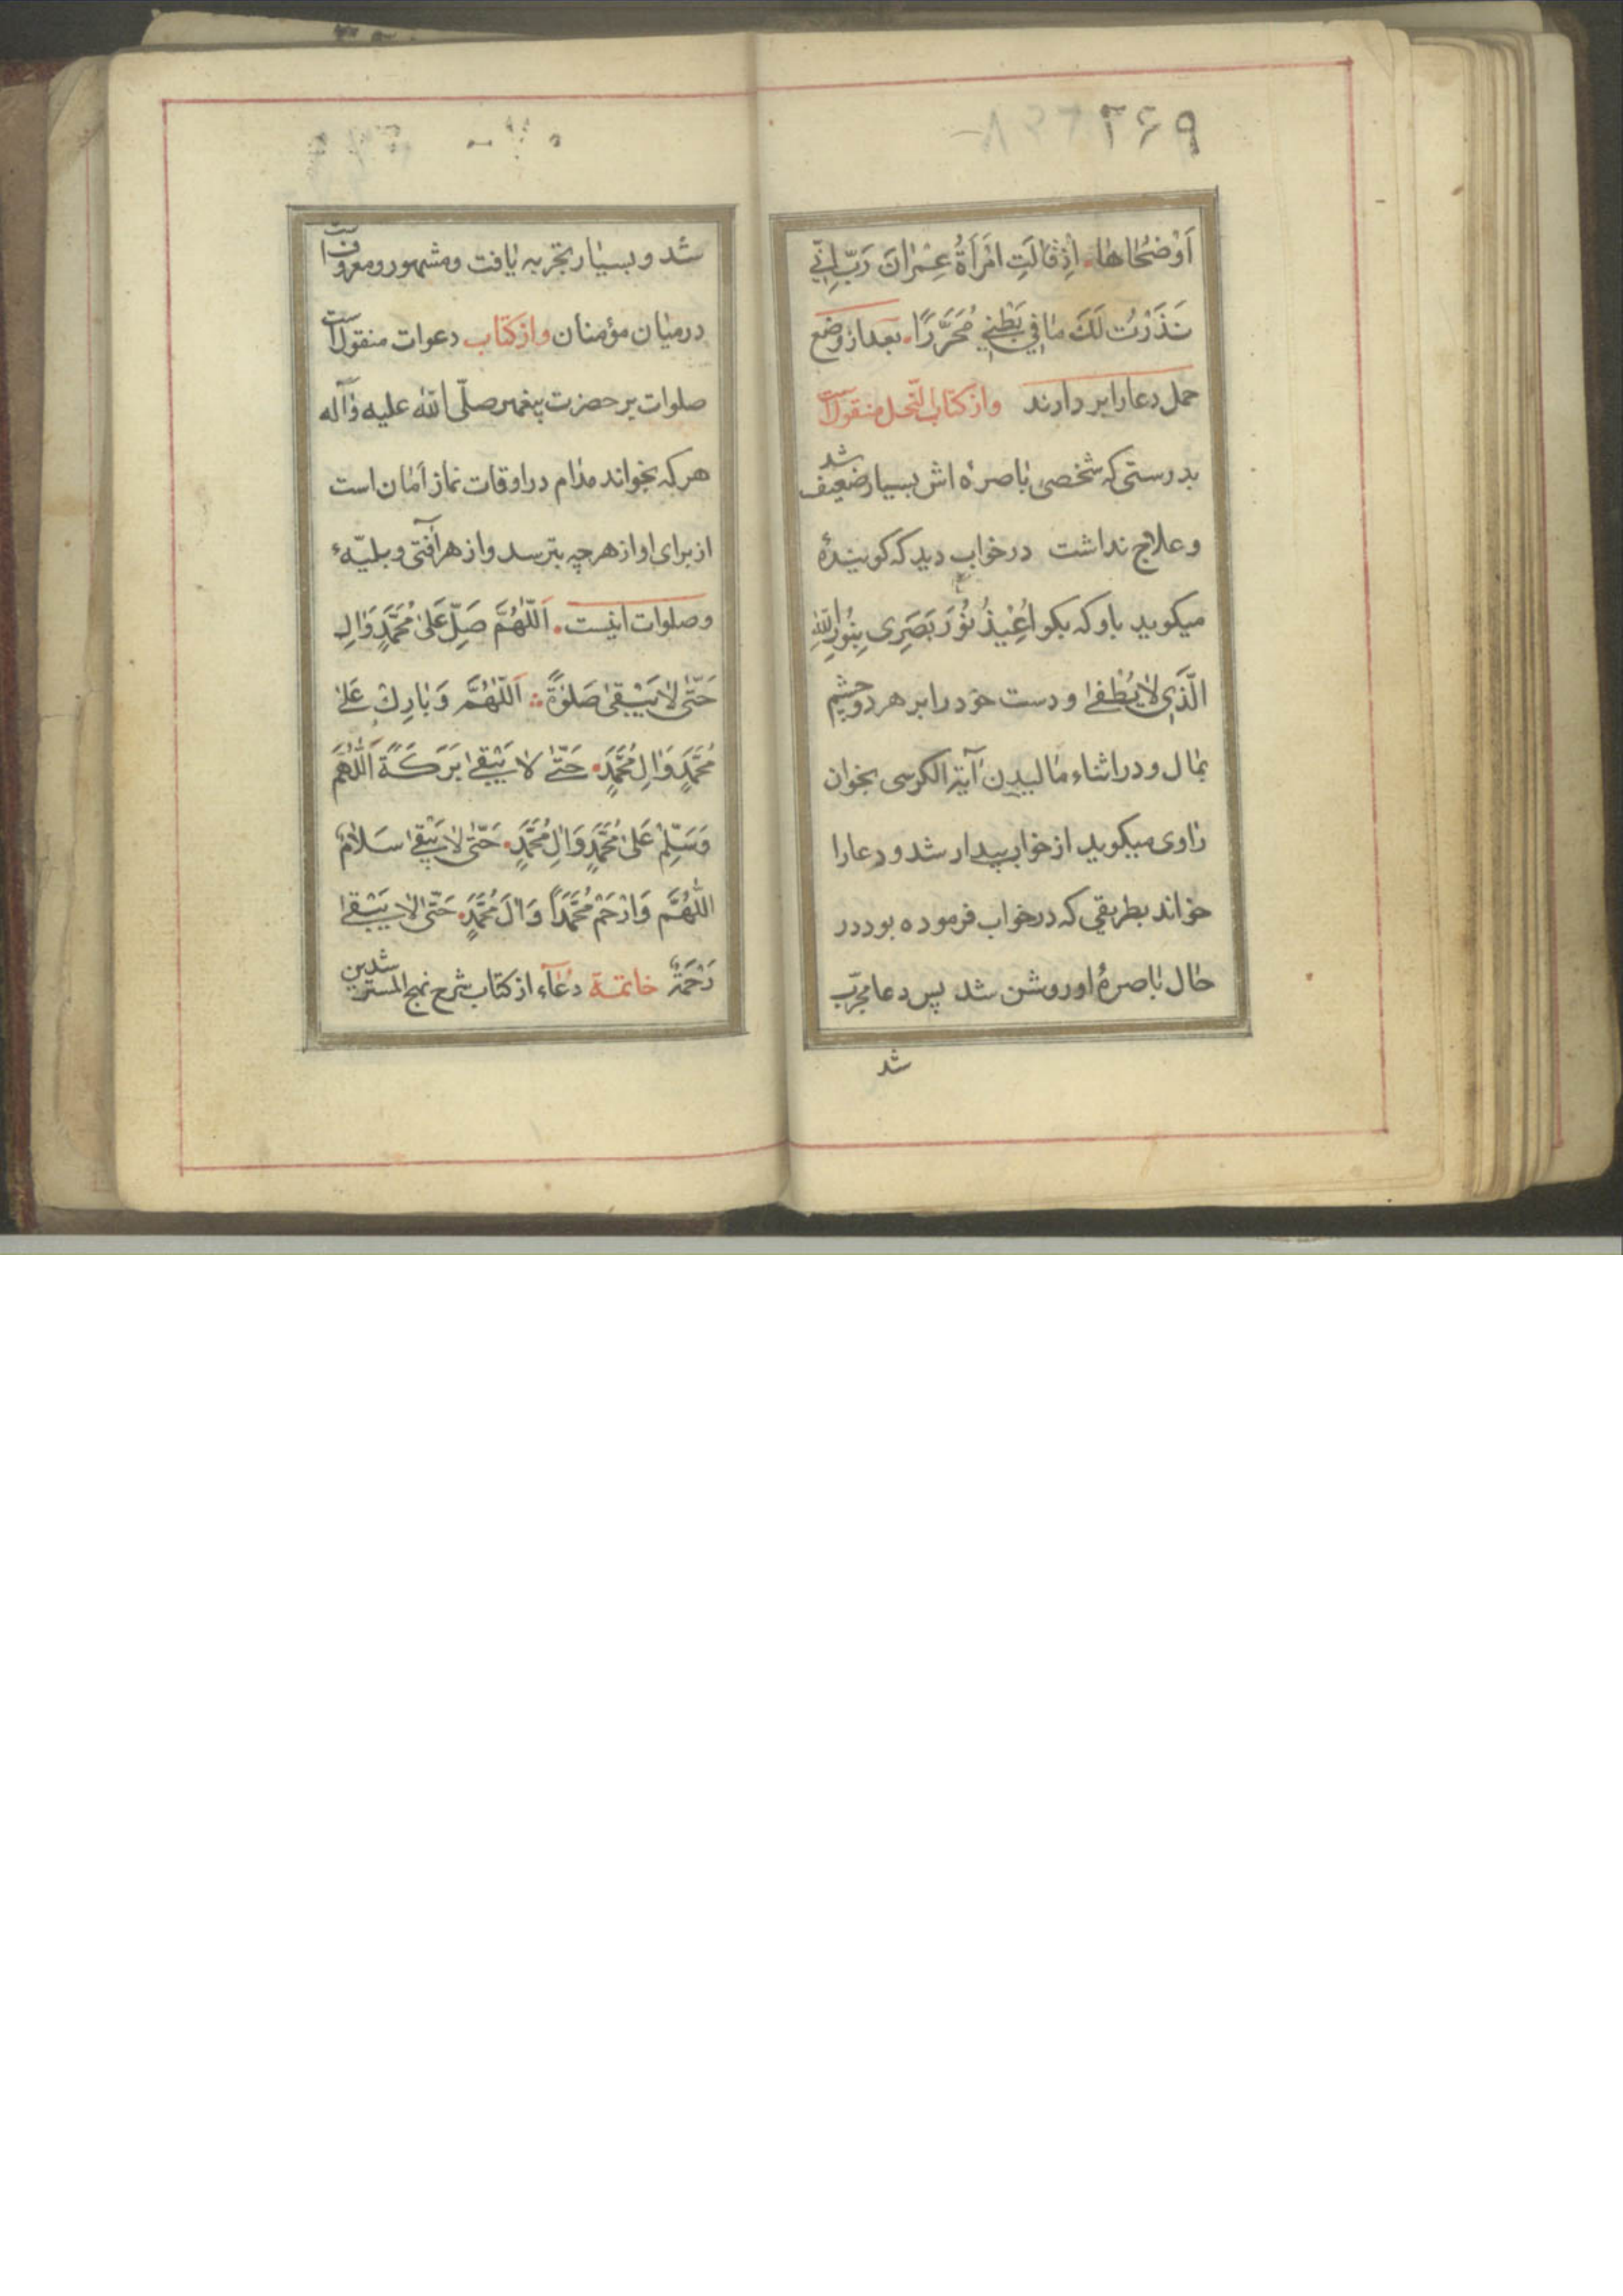 ۳۶۹
اَوْضُحٰاهٰا. اِذْقٰالَتِ امْرَأَةُ عِمْرٰانَ رَبِّ اِنّي
نَذَرْتُ لَكَ مٰافي بَطْني مُحَرَّرًا. بعداز وضع
حمل دعارا بر دارند واز كتاب النّحل منقولست
بدرستى كه شخصى باصرهٔ اش بسيار ضعيف شد
وعلاج نداشت درخواب ديد كه كويندهٔ
ميكويد باو كه بكو اُعيْذُ نُوْرَ بَصَرِى بِنُوْرِ اللّٰهِ
الَّذي لاٰ يُطْفىٰ و دست خود را بر هر دو چشم
بمال و در اثناء ماليدن آية الكرسى بخوان
راوى ميكويد از خواب بيدار شد و دعارا
خواند بطريقي كه درخواب فرموده بود در
حال باصرهٔ او روشن شد پس دعا مجرّب
شد
شد و بسيار تجربه يافت ومشهور ومعروفست
درميان مؤمنان واز كتاب دعوات منقولست
صلوات بر حضرت پيغمبر صلّى اللّٰه عليه وآله
هركه بخواند مدام در اوقات نماز امان است
از براى او از هر چه بترسد واز هر آفتى و بليّهٔ
وصلوات اينست. اَللّٰهُمَّ صَلِّ عَلىٰ مُحَمَّدٍ وَاٰلِهِ
حَتّٰى لاٰ يَبْقىٰ صَلوٰةٌ اَللّٰهُمَّ وَبٰارِكْ عَلىٰ
مُحَمَّدٍ وَاٰلِ مُحَمَّدٍ. حَتّٰى لاٰ يَبْقىٰ بَرَكَةً اَللّٰهُمَّ
وَسَلِّمْ عَلىٰ مُحَمَّدٍ وَاٰلِ مُحَمَّدٍ. حَتّٰى لاٰ يَبْقىٰ سَلاٰمٌ
اللّٰهُمَّ وَارْحَمْ مُحَمَّدًا وَاٰلَ مُحَمَّدٍ. حَتّٰى لاٰ يَبْقىٰ
رَحْمَةٌ خاتمة دعآء از كتاب شرح نهج المسترشدين